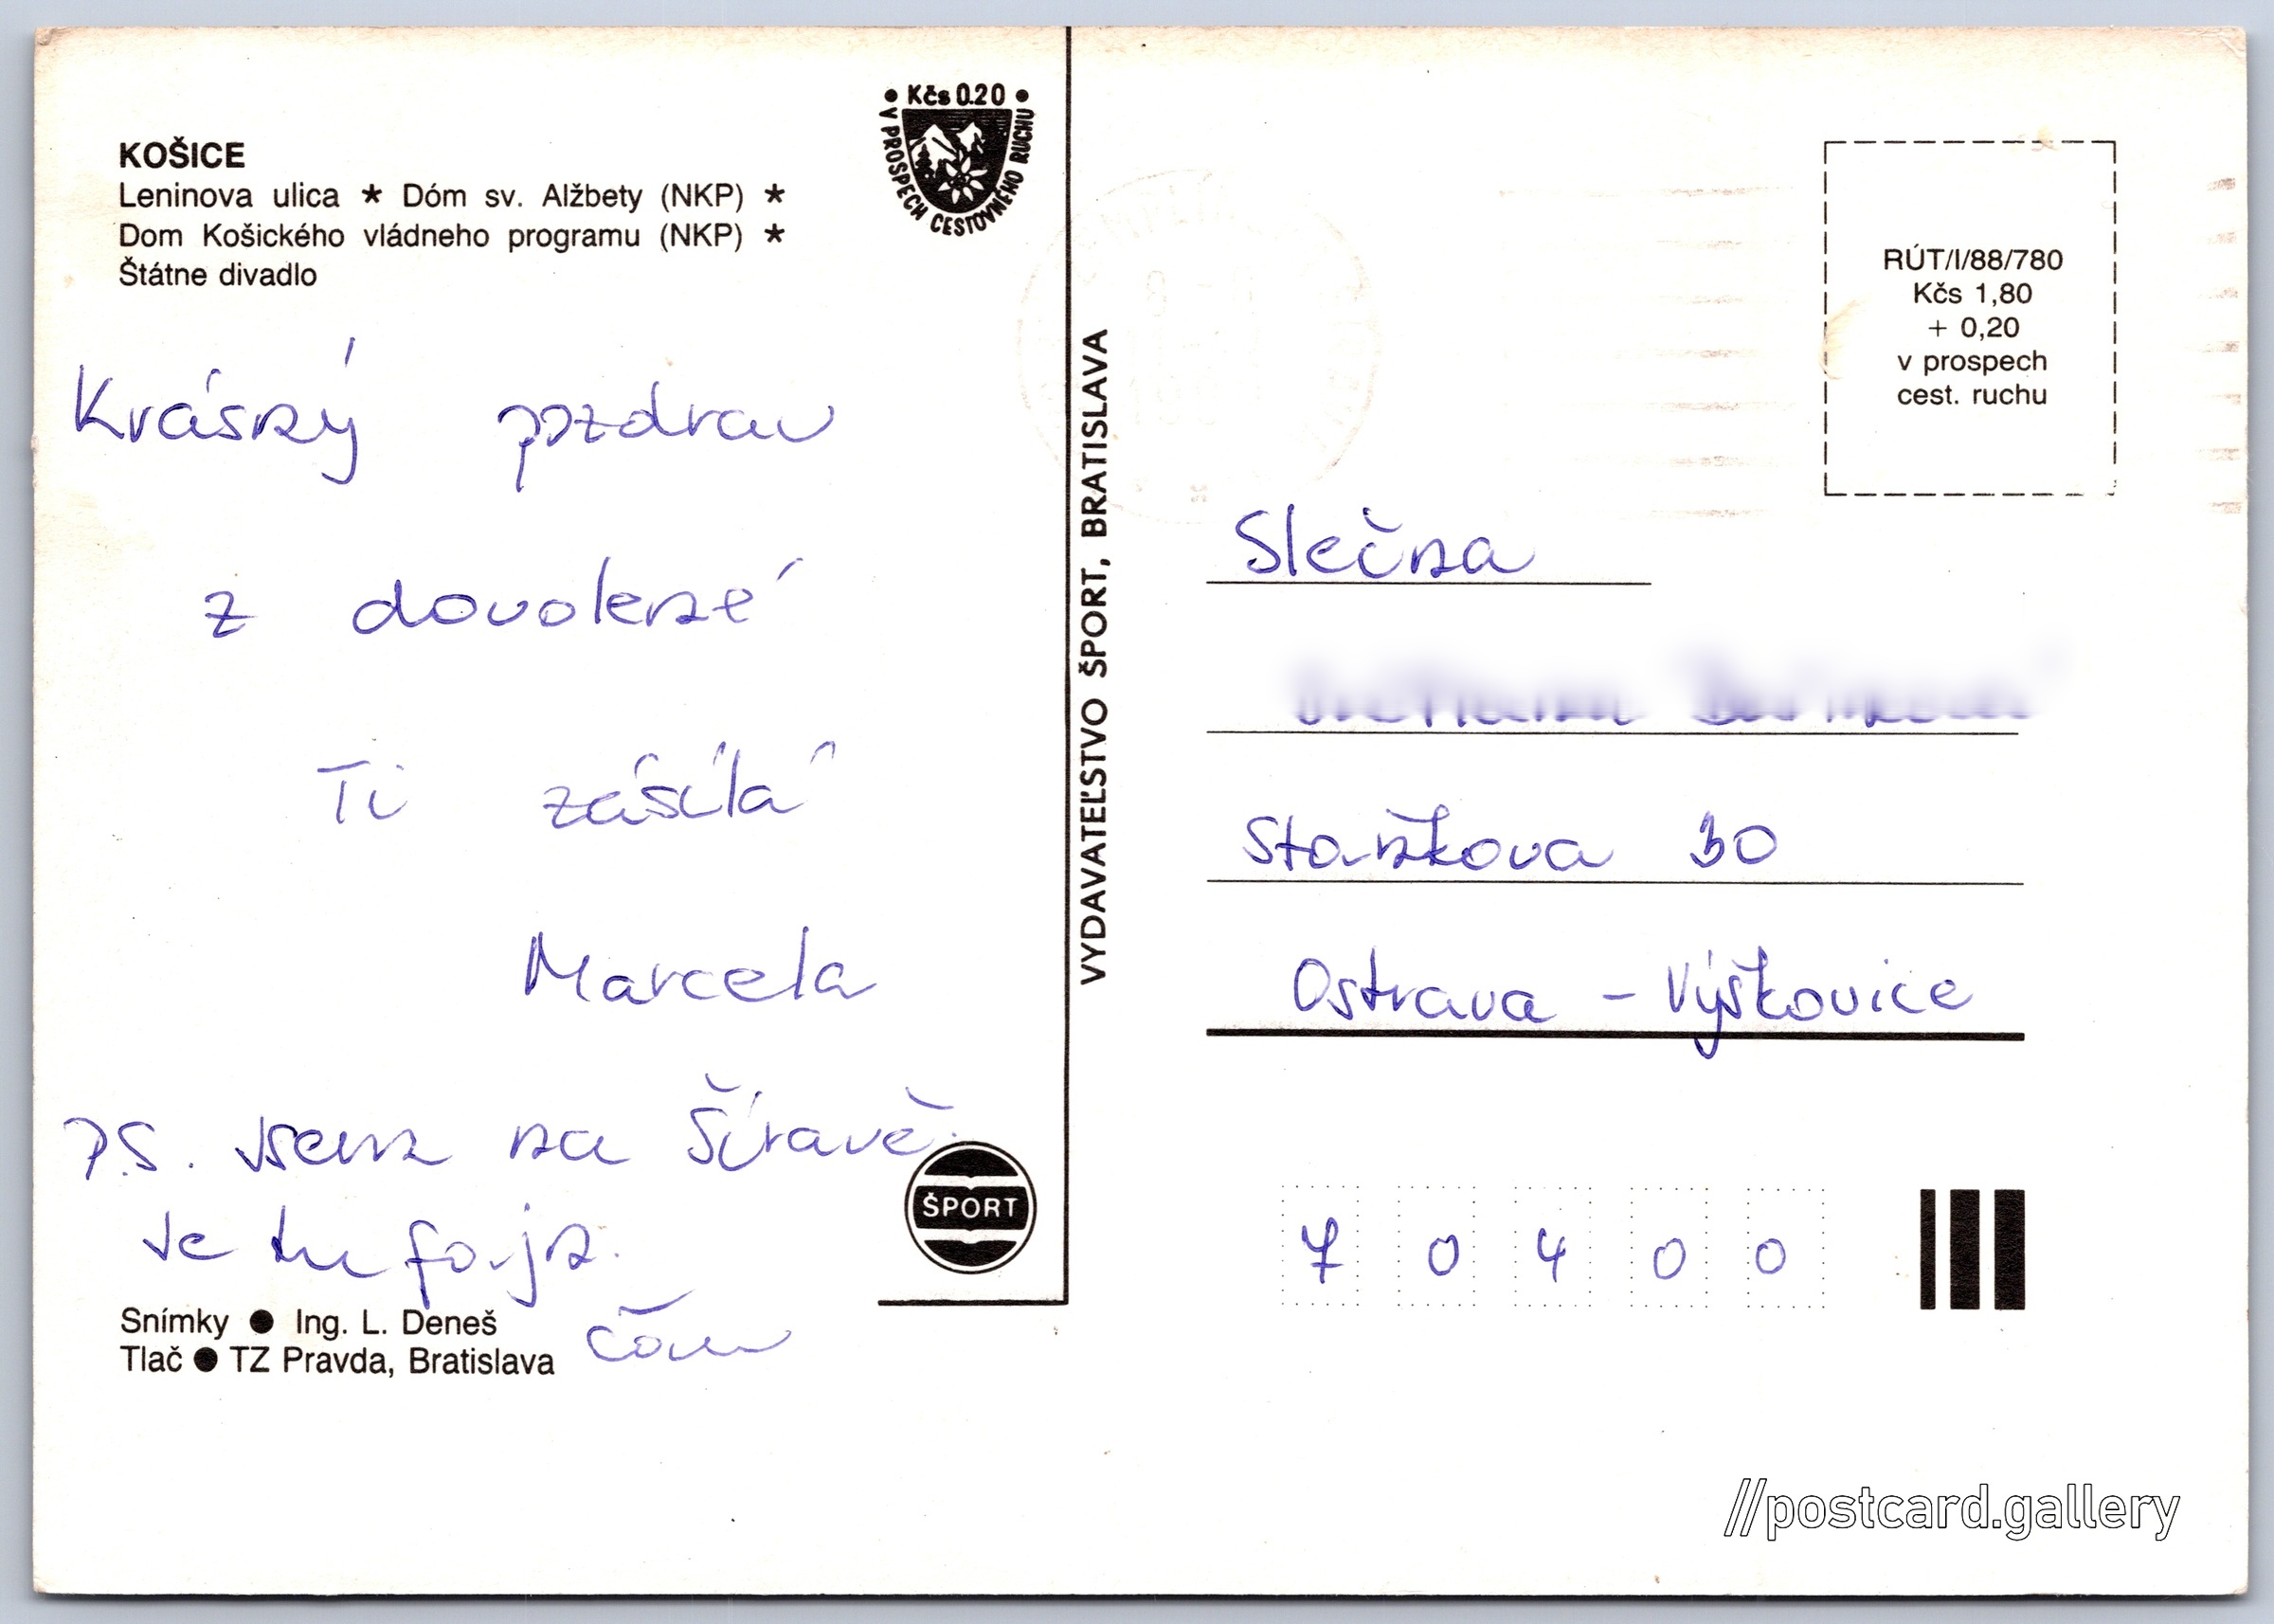 KOŠICE
Leninova ulica * Dóm sv. Alžbety (NKP) *
Dom Košického vládneho programu (NKP) *
Štátne divadlo
• Kčs 0.20 •
V PROSPECH CESTOVNÉHO RUCHU
Krásný pozdrav
z dovolené
Ti zásílá
Marcela
P.S. Jsem na Šíravě.
Je tu fajn.
čau
ŠPORT
Snímky ● Ing. L. Deneš
Tlač ● TZ Pravda, Bratislava
VYDAVATEĽSTVO ŠPORT, BRATISLAVA
RÚT/I/88/780
Kčs 1,80
+ 0,20
v prospech
cest. ruchu
Slečna
Staňkova 30
Ostrava - Výškovice
7 0 4 0 0
//postcard.gallery